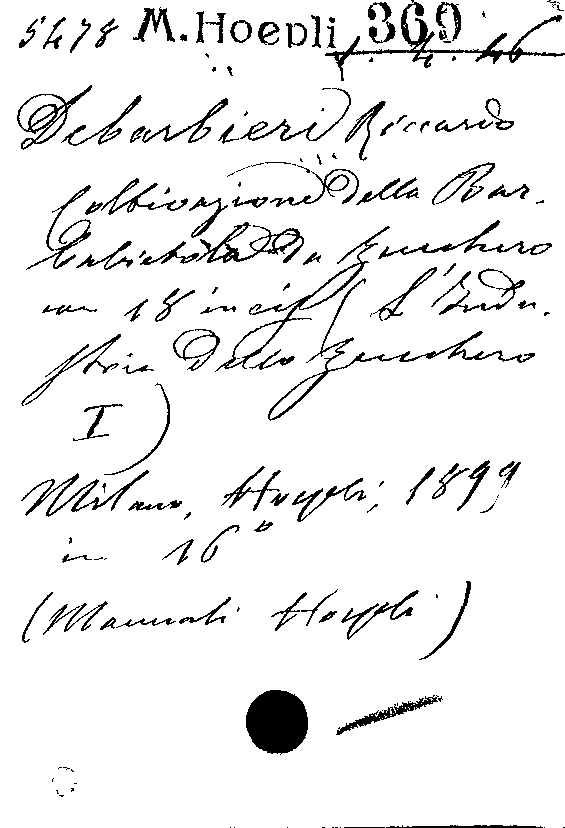 5478 M. Hoepli 369
1. 4. 46
Debarbieri Riccardo
Coltivazione della Bar-
babietola da Zucchero
con 18 incis. (L'Indu-
stria dello Zucchero
I)
Milano, Hoepli, 1899
in 16°
(Manuali Hoepli)